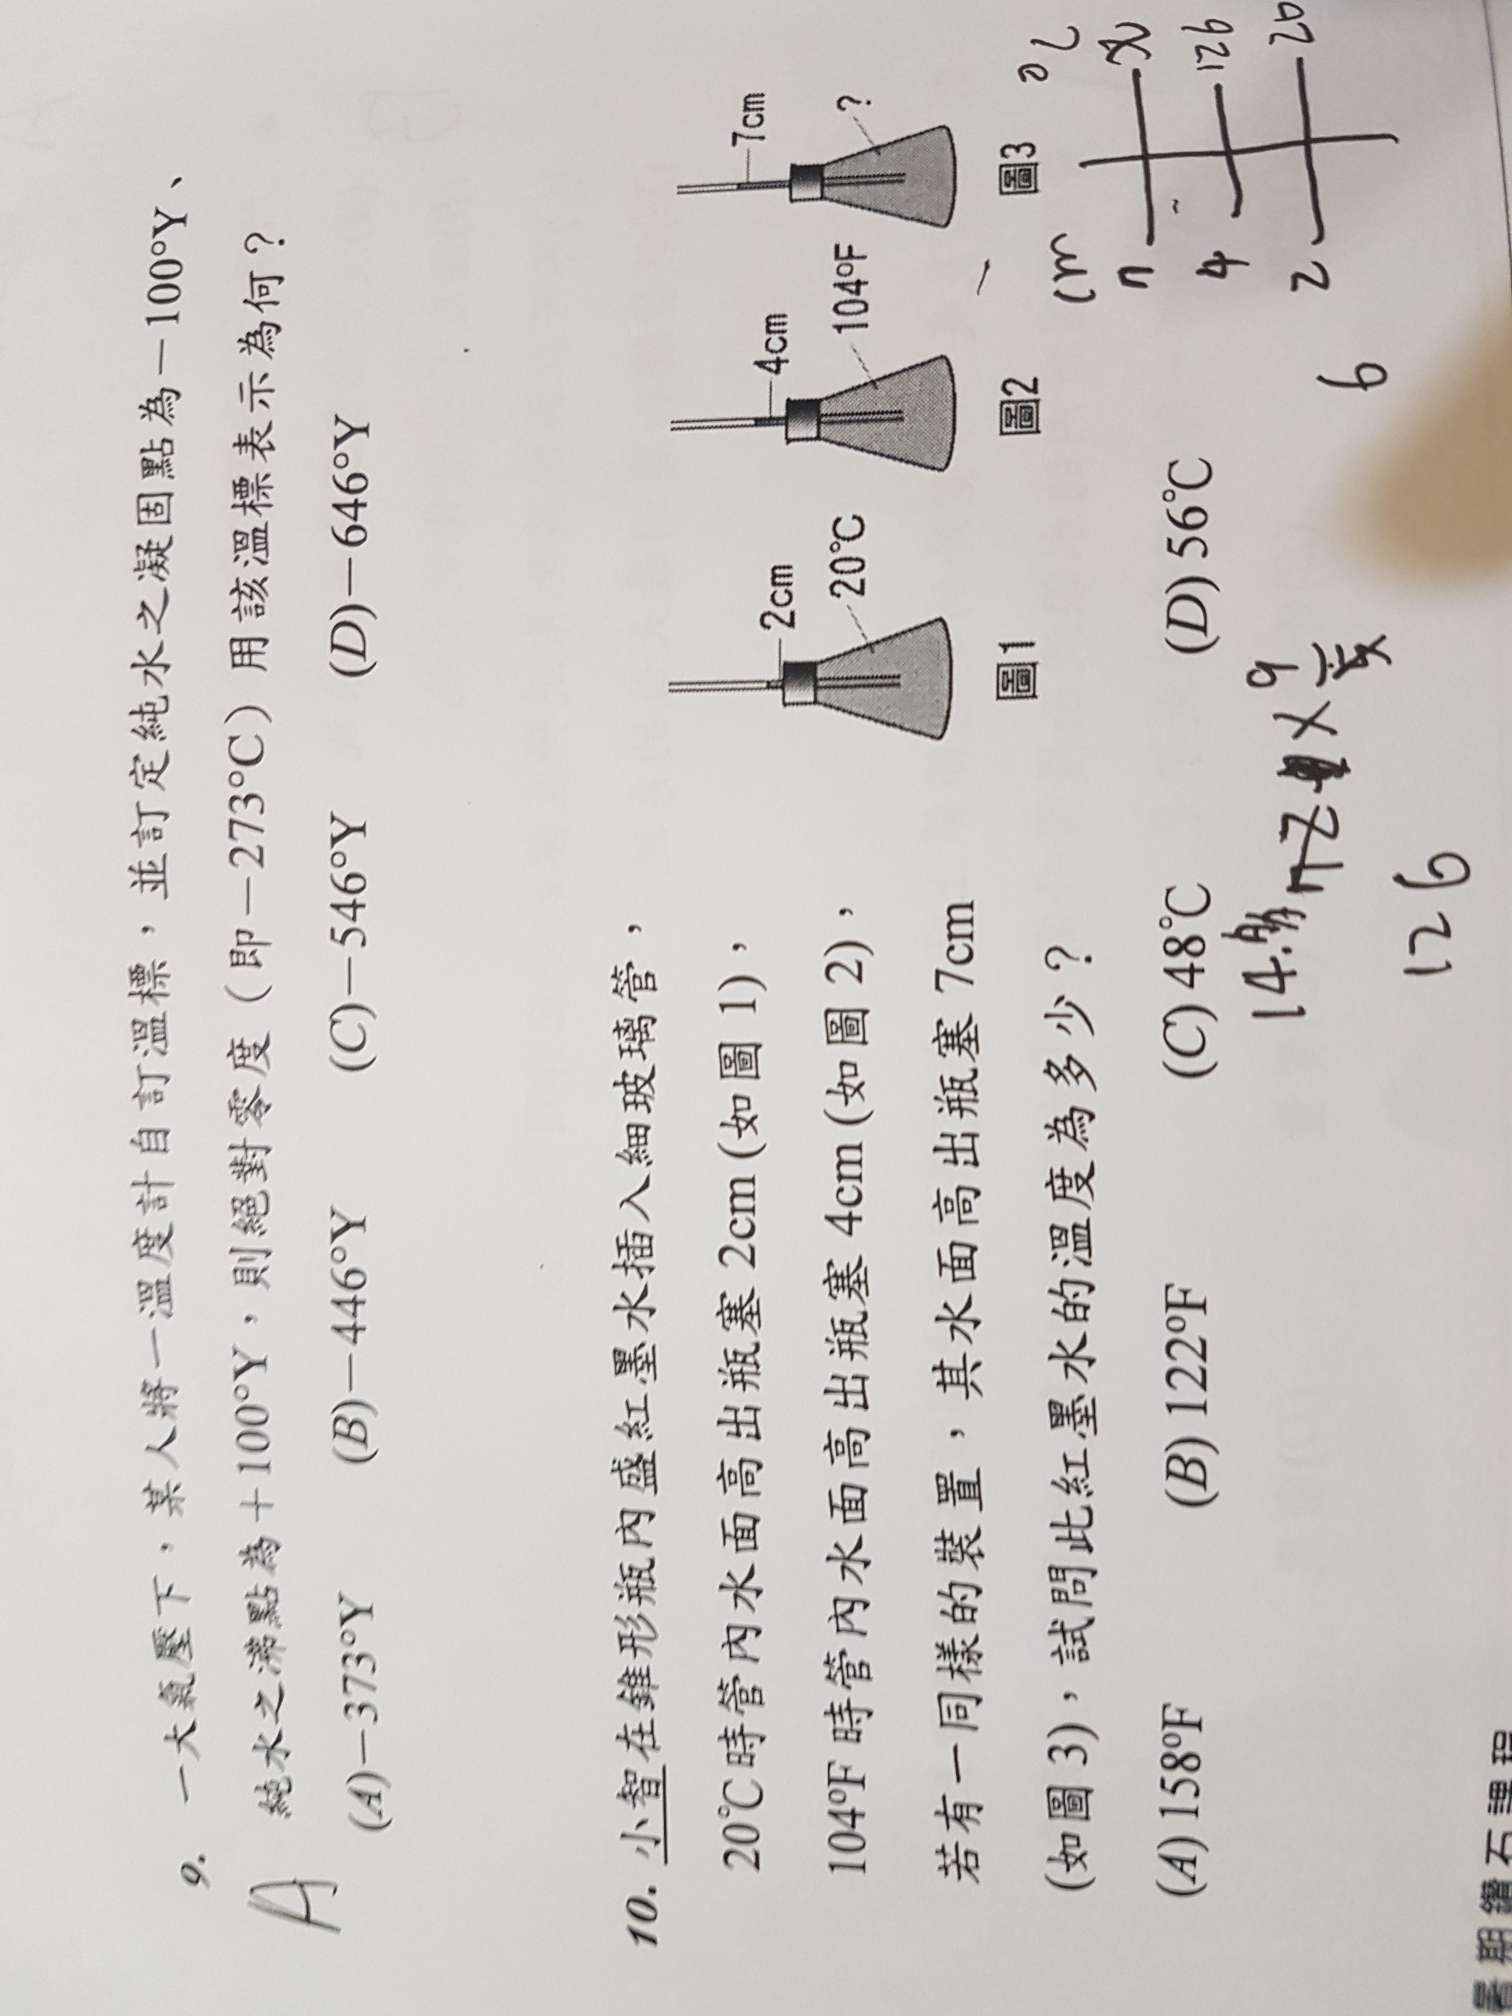 9. 一大氣壓下，某人將一溫度計自訂溫標，並訂定純水之凝固點為－100°Y、
純水之沸點為＋100°Y，則絕對零度（即－273°C）用該溫標表示為何？
A
(A)－373°Y (B)－446°Y (C)－546°Y (D)－646°Y
10. 小智在錐形瓶內盛紅墨水插入細玻璃管，
20℃時管內水面高出瓶塞 2cm (如圖 1)，
104°F 時管內水面高出瓶塞 4cm (如圖 2)，
若有一同樣的裝置，其水面高出瓶塞 7cm
(如圖 3)，試問此紅墨水的溫度為多少？
2cm
20℃
圖1
4cm
104°F
圖2
7cm
?
圖3
(A) 158°F (B) 122°F (C) 48℃ (D) 56℃
cm
7 x
4 126
2 20
6
126
暑期鑽石課程